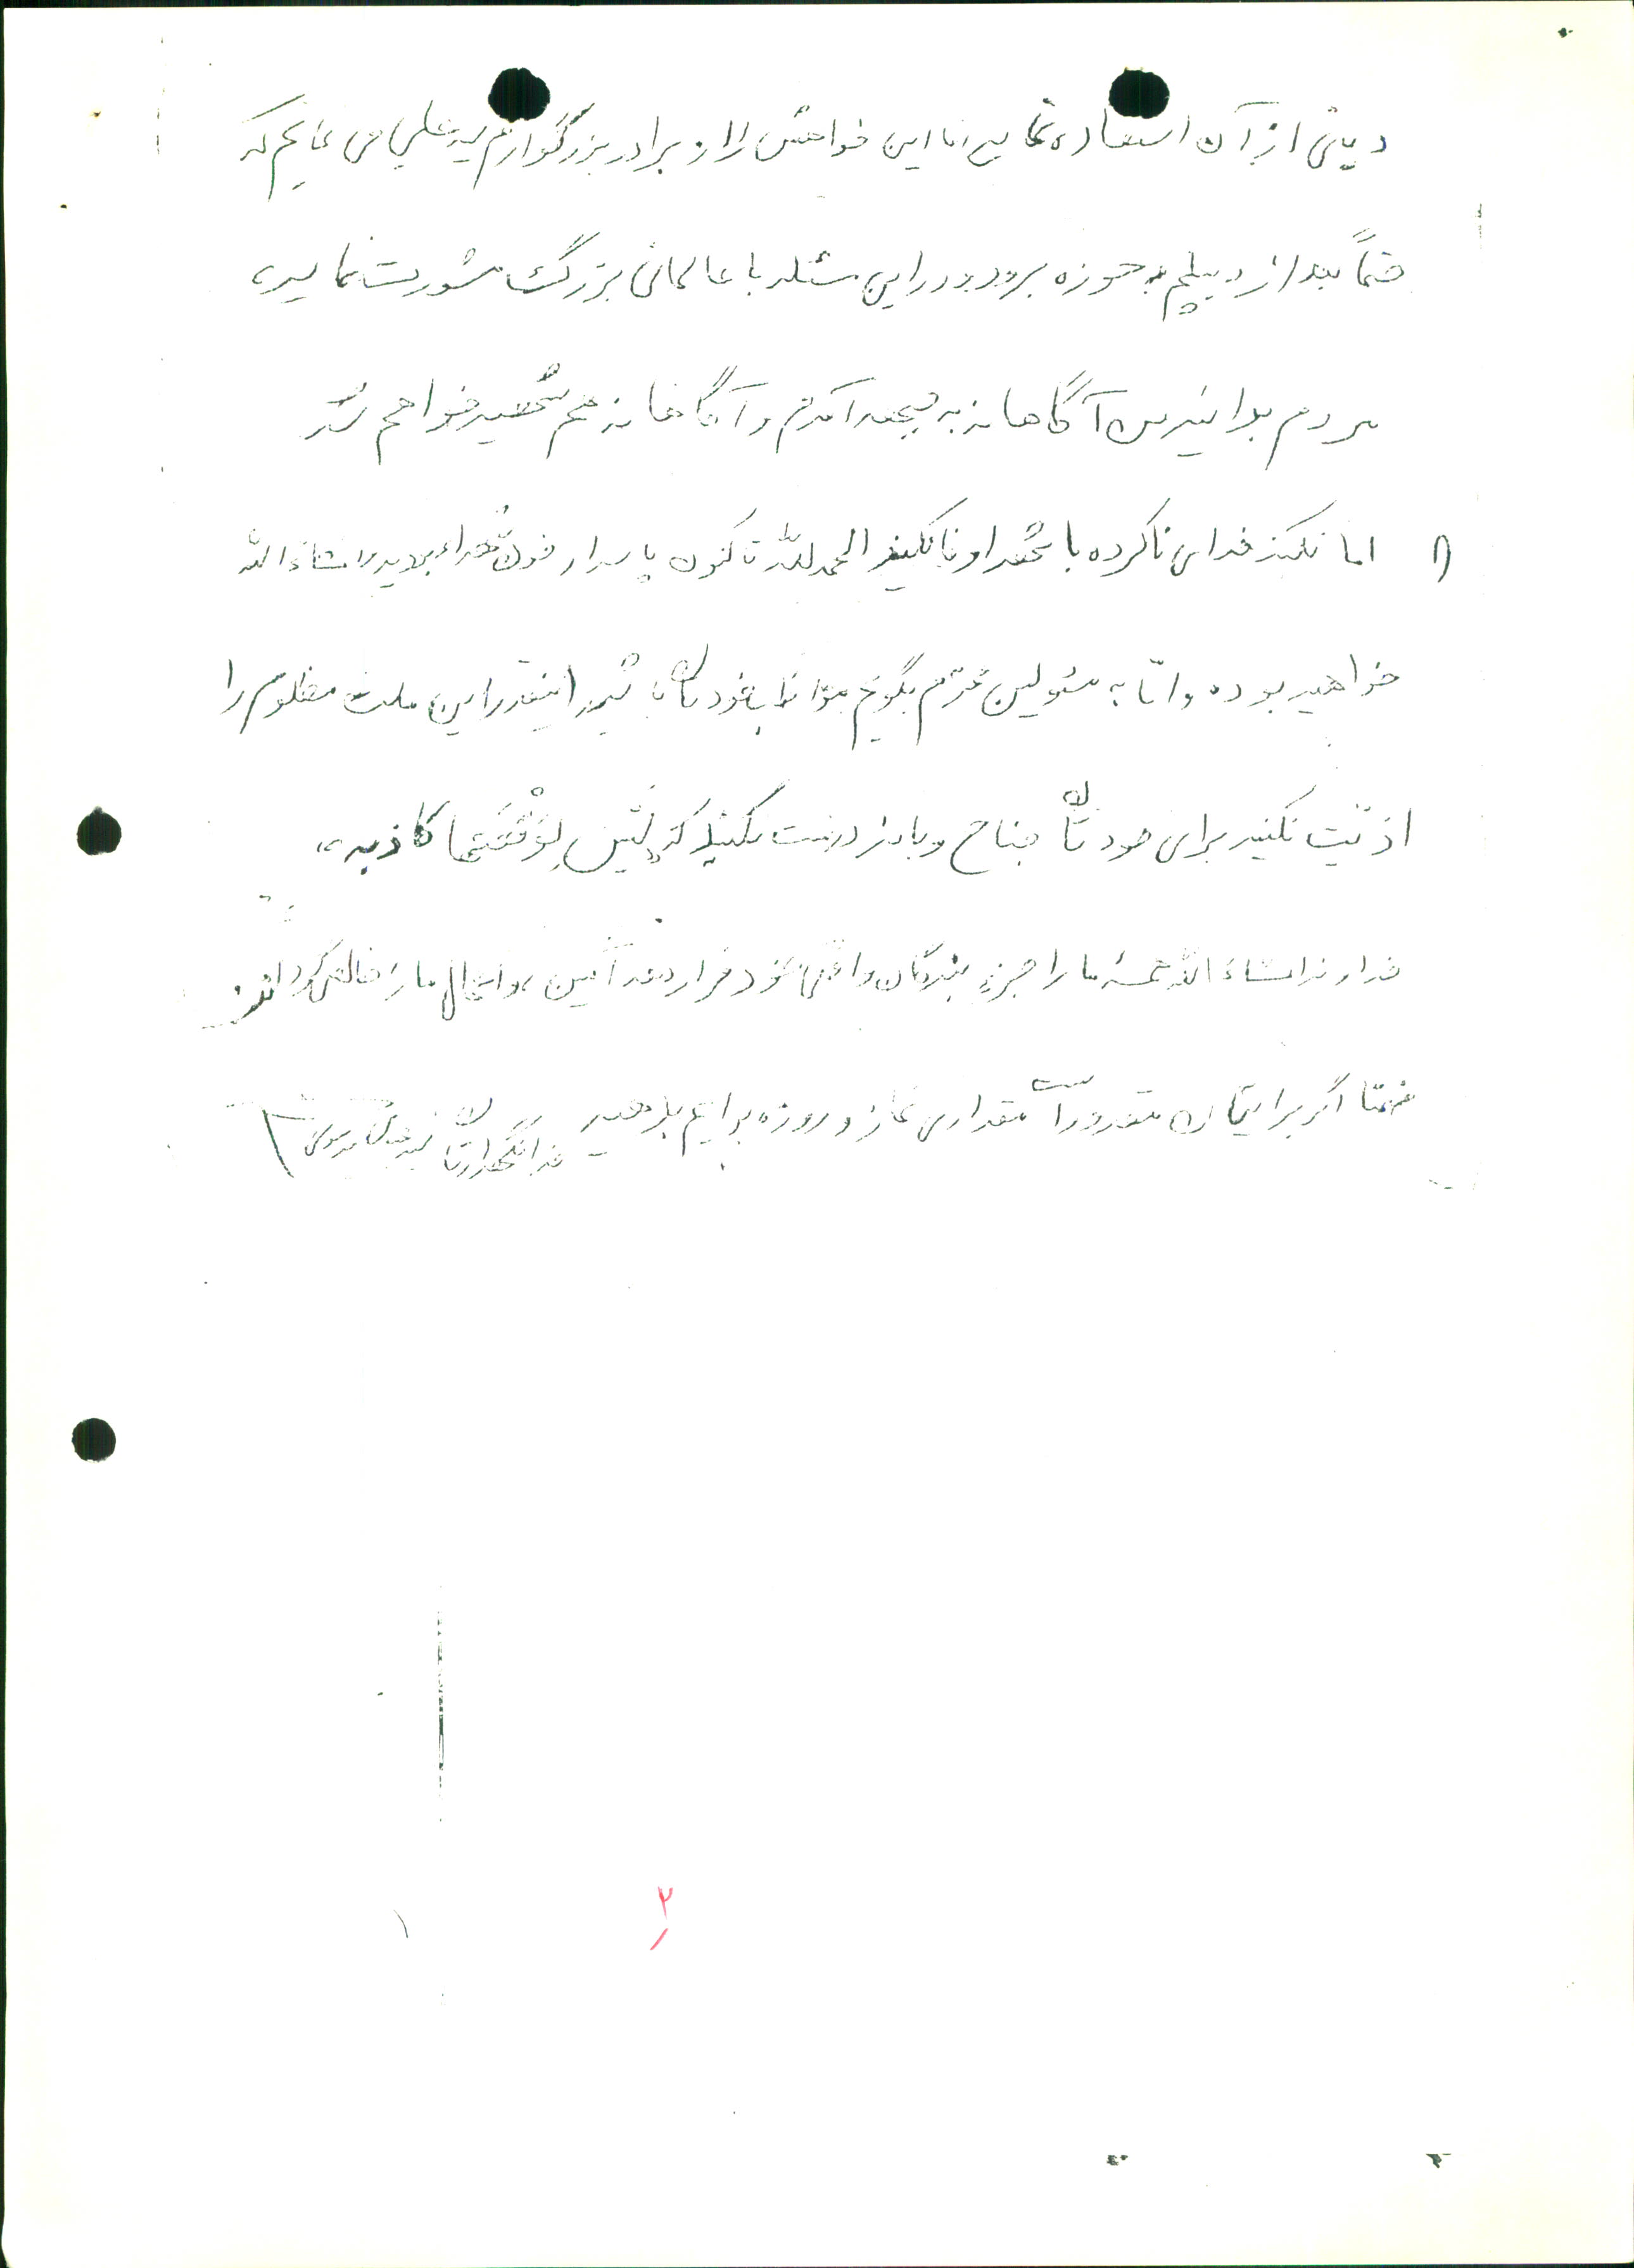 دینی از آن استفاده نمایید اما این خواهش را از برادر بزرگوارم سید علی می نمایم که
حتماً بعد از دیپلم به حوزه برود و در این مسئله با عالمان بزرگ مشورت نماید،
مردم بدانید من آگاهانه به جبهه آمدم و آگاهانه هم شهید خواهم شد
۸) اما نکند خدای ناکرده با شهدا و الحمدلله تاکنون پاسدار خون شهدا بودید و انشاءالله
خواهید بود، و اما به مسئولین محترم بگویم مواظب خودتان باشید اینقدر این ملت مظلوم را
اذیّت نکنید برای خودتان جناح و باند درست نکنید که لَیْسَ لِوَقْعَتِها کاذبه،
خداوند انشاءالله همهٔ ما را جزءِ بندگان واقعی خود قرار دهد آمین، و اعمال ما را خالص گرداند.
ضمنا اگر برایتان مقدور است مقداری نماز و روزه برایم بدهید
خدانگهدارتان سید موسوی
۲
۱